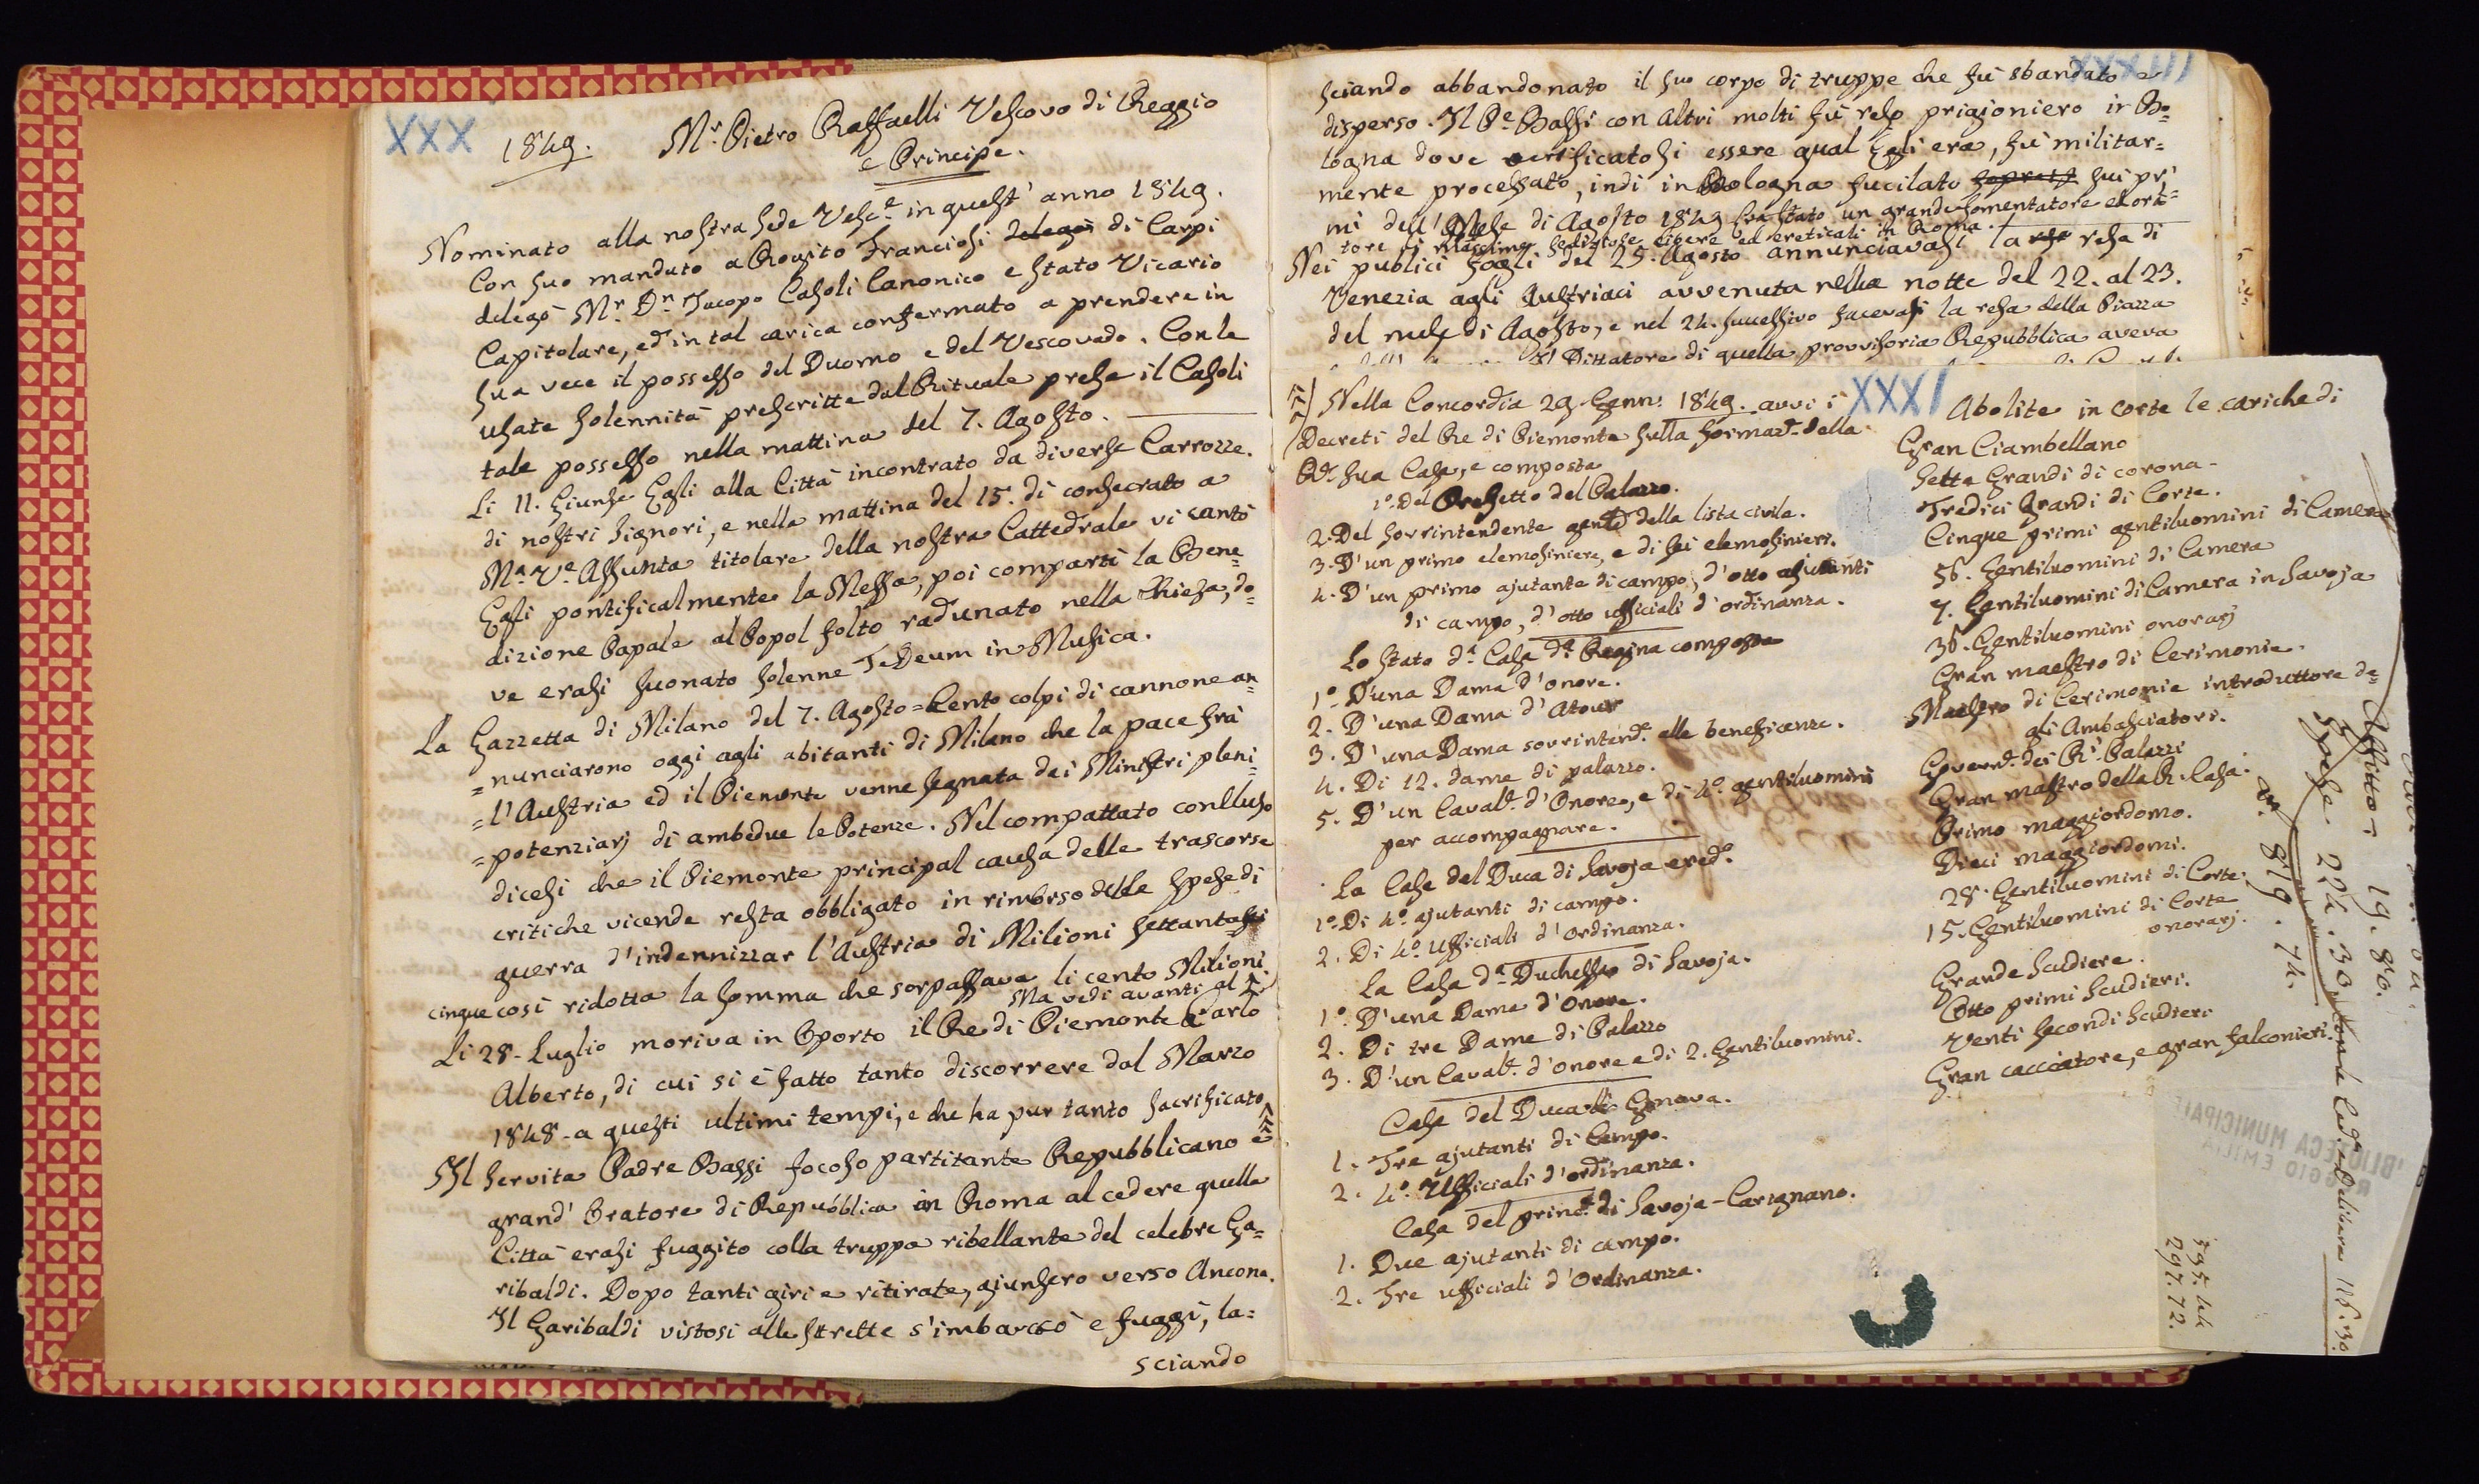 XXX
1849. Mr. Pietro Raffaelli Vescovo di Reggio
e Principe.
Nominato alla nostra Sede Vesce. in quest' anno 1849.
Con suo mandato a Rogito Franciosi delegò di Carpi
delegò Mr. Dn. Jacopo Casoli Canonico e stato Vicario
Capitolare, ed in tal carica confermato a prendere in
sua vece il possesso del Duomo e del Vescovado. Con le
usate solennità prescritte dal Rituale prese il Casoli
tale possesso nella mattina del 7. Agosto.
Li 11. giunse Egli alla Città incontrato da diverse Carrozze.
di nostri Signori, e nella mattina del 15. dì consecrato a
Ma. Ve. Assunta titolare della nostra Cattedrale vi cantò
Egli pontificalmente la Messa, poi compartì la Bene=
dizione Papale al Popol folto radunato nella Chiesa, do=
ve erasi suonato solenne TeDeum in Musica.
La Gazzetta di Milano del 7. Agosto = Cento colpi di cannone an=
=nunciarono oggi agli abitanti di Milano che la pace frà
=l'Austria ed il Piemonte venne segnata dai Ministri pleni=
=potenziarj di ambedue le Potenze. Nel compattato concluso
dicesi che il Piemonte principal causa delle trascorse
critiche vicende resta obbligato in rimborso delle spese di
guerra d'indennizzar l'Austria di Milioni settanta
cinque così ridotta la somma che sorpassava li cento Milioni.
Ma vedi avanti al
Li 28. Luglio moriva in Oporto il Re di Piemonte Carlo
Alberto, di cui si è fatto tanto discorrere dal Marzo
1848 - a questi ultimi tempi, e che ha pur tanto sacrificato.
Il Servita Padre Bassi focoso partitante Repubblicano e
grand' Oratore di Repubblica in Roma al cedere quella
Città erasi fuggito colla truppa ribellante del celebre Ga=
ribaldi. Dopo tanti giri e ritirate, giunsero verso Ancona.
Il Garibaldi vistosi alle strette s'imbarcò e fuggì, la=
sciando
XXXIII
sciando abbandonato il suo corpo di truppe che fù sbandato e
disperso. Il Pe. Bassi con altri molti fù reso prigioniero in Bo=
logna dove verificatosi essere qual Egli era, fù militar=
mente processato, indi in Bologna fucilato sui pri
mi dell' Mese di Agosto 1849 Era stato un grande fomentatore ed ora=
tore di massime sediziose, libere ed ereticali in Roma.
Nei publici fogli del 25. Agosto annunciavasi la resa di
Venezia agli Austriaci avvenuta nella notte del 22. al 23.
del mese di Agosto, e nel 24. successivo facevasi la resa della Piazza
Il Dittatore di quella provvisoria Repubblica aveva
XXXI
Nella Concordia 29. Genn: 1849. avvi i
Decreti del Re di Piemonte sulla formaze. della
Rl. sua Casa, e composta
1º. Del Prefetto del Palazzo.
2. Del sovrintendente gente. della lista civile.
3. D'un primo elemosiniere, e di sei elemosinieri.
4. D'un primo ajutante di campo, d'otto ajutanti
di campo, d'otto ufficiali d'ordinanza.
Lo stato da. Casa da. Regina composta
1º. D'una Dama d'onore.
2. D'una Dama d'Atour
3. D'una Dama sovrintende. alle beneficenze.
4. Di 12. dame di palazzo.
5. D'un Cavale. d'Onore, e di 4º. gentiluomini
per accompagnare.
La Casa del Duca di Savoja erede.
1º. Di 4º. ajutanti di campo.
2. Di 4º. Ufficiali d'Ordinanza.
La Casa da. Duchessa di Savoja.
1º. D'una Dama d'Onore.
2. Di tre Dame di Palazzo
3. D'un Cavale. d'onore e di 2. Gentiluomini.
Casa del Duca di Genova.
1. Tre ajutanti di Campo.
2. 4º. Ufficiali d'ordinanza.
Casa del prince. di Savoja-Carignano.
1. Due ajutanti di campo.
2. Tre ufficiali d'Ordinanza.
Abolite in corte le cariche di
Gran Ciambellano
Sette Grandi di corona.
Tredici Grandi di Corte.
Cinque primi gentiluomini di Camera
56. Gentiluomini di Camera
7. Gentiluomini di Camera in Savoja
36. Gentiluomini onorarj
Gran maestro di Cerimonie.
Maestro di Cerimonie introduttore de=
gli Ambasciatori.
Governe. dei Ri. Palazzi
Gran mastro della R. Casa.
Primo maggiordomo.
Dieci maggiordomi.
28. Gentiluomini di Corte.
15. Gentiluomini di Corte
onorarj.
Grande Scudiere.
Otto primi Scudieri.
Venti secondi Scudieri
Gran cacciatore, e gran falconieri.
Affitto 19. 86.
Spese 224. 30
819. 74.
116. 30.
595. 44
297. 72.
BIBLIOTECA MUNICIPALE
REGGIO EMILIA